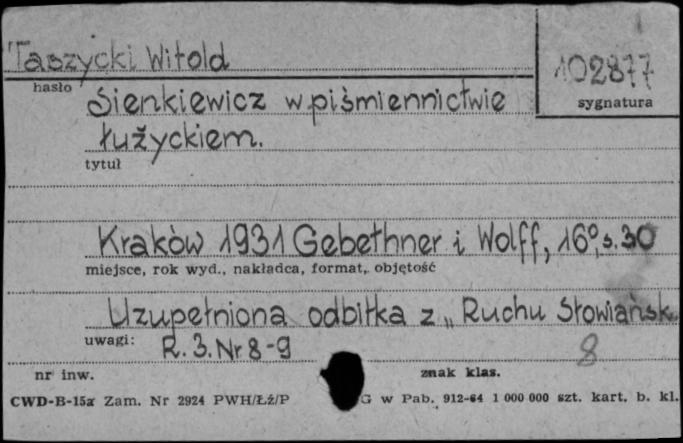 Taszycki Witold
102877
hasło
sygnatura
Sienkiewicz w piśmiennictwie
łużyckiem.
tytuł
Kraków 1931 Gebethner i Wolff, 16°, s. 30
miejsce, rok wyd., nakładca, format, objętość
Uzupełniona odbitka z „Ruchu Słowiańsk.
uwagi:
R. 3. Nr 8-9
8
nr inw.
znak klas.
CWD-B-15a Zam. Nr 2924 PWH/Łź/P G w Pab. 912-64 1 000 000 szt. kart. b. kl.